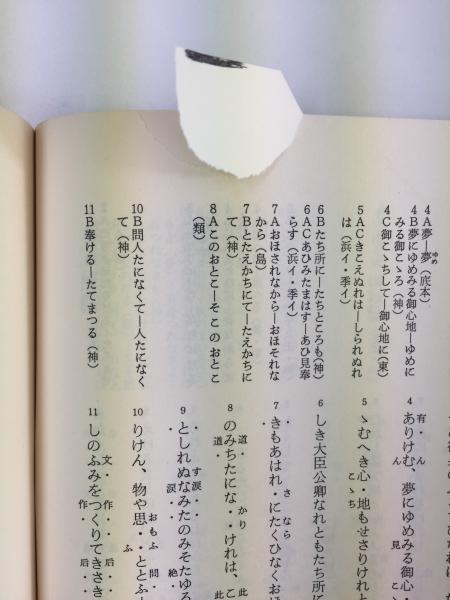 4A夢―夢(底本)
ゆめ
4B夢にゆめみる御心地―ゆめに
みる御こゝろ(神)
4C御こゝちして―御心地に(東)
5ACきこえぬれは―しられぬれ
は(浜イ・季イ)
6Bたち所に―たちところも(神)
6ACあひみたまはす―あひ見奉
らす(浜イ・季イ)
7Aおほされなから―おほそれな
から(島)
7Bとたえかちにて―たえかちに
て(神)
8Aこのおとこ―そこのおとこ
(類)
10B問人たになくて―人たになく
て(神)
11B奉ける―たてまつる(神)
有・ん
4 ありけむ、夢にゆめみる御心
ん 見 こ
5 ゝむへき心・地もせさりけれと
こゝち
6 しき大臣公卿なれともたち所に
・ さ なら
7 きもあはれ・にたくひなくお
道・ かり 此
8 のみちたにな・・けれは、こ
道・ 此
・す涙・・
9 としれぬなみたのみそたゆる
・ 涙・ 絶・
10 りけん、物や思・・ととふ
おもふ 問・
ふ
文・ 作・・ 后・
11 しのふみをつくりてきさき
作・ 后・